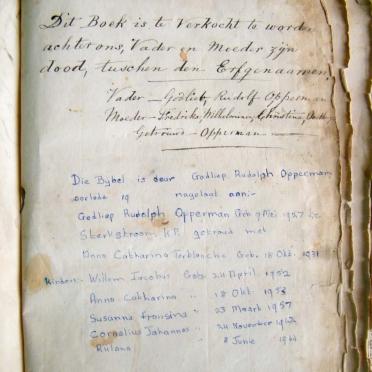 Dit Boek is te Verkocht te worden
achter ons, Vader en Moeder zijn
dood, tuschen den Erfgenaamen,
Vader — Godlieb, Rudolf Opperman
Moeder — Fredrika, Wilhelmina, Christina,
Getrouwd — Opperman
Die Bybel is deur Godliep Rudolph Opperman
oorlede 19 nagelaat aan:-
Godliep Rudolph Opperman Geb 9 Mei 1927 te
Sterkstroom K.P. getroud met
Anna Catharina Terblanche Geb. 18 Okt. 1931
Kinders:- Willem Jacobus Geb. 24 April 1952
Anna Catharina " 18 Okt. 1953
Susanna Fransina " 23 Maart 1957
Cornelius Johannes " 24 November
Rulana " 8 Junie